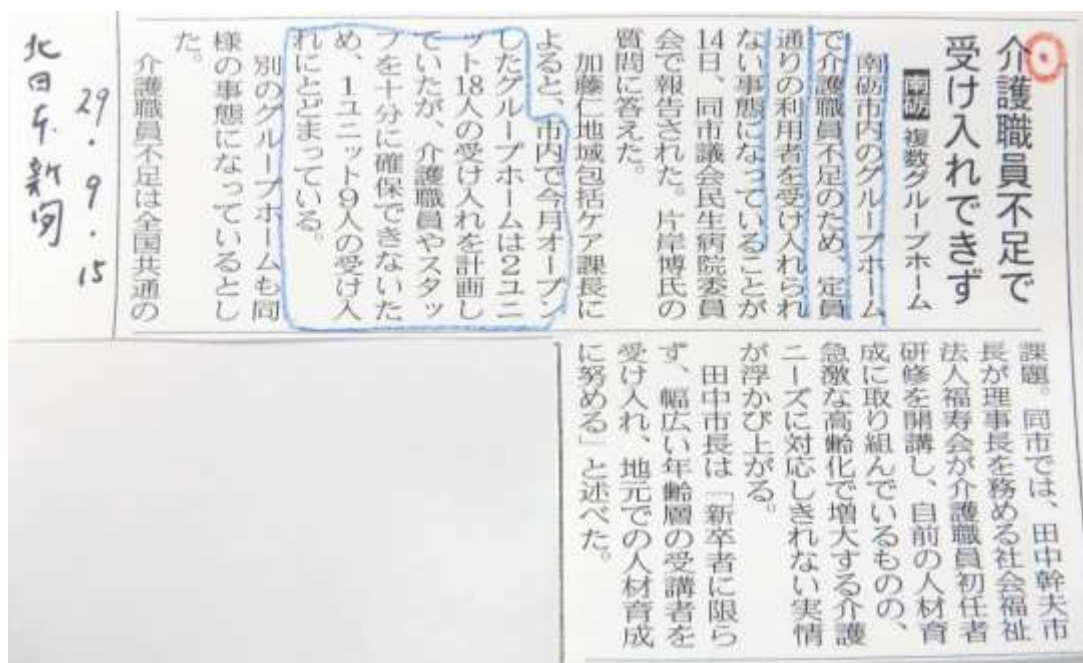 介護職員不足で
受け入れできず
南砺 複数グループホーム
南砺市内のグループホーム
で介護職員不足のため、定員
通りの利用者を受け入れられ
ない事態になっていることが
14日、同市議会民生病院委員
会で報告された。片岸博氏の
質問に答えた。
加藤仁地域包括ケア課長に
よると、市内で今月オープン
したグループホームは2ユニ
ット18人の受け入れを計画し
ていたが、介護職員やスタッ
フを十分に確保できないた
め、1ユニット9人の受け入
れにとどまっている。
別のグループホームも同
様の事態になっているとし
た。
介護職員不足は全国共通の
課題。同市では、田中幹夫市
長が理事長を務める社会福祉
法人福寿会が介護職員初任者
研修を開講し、自前の人材育
成に取り組んでいるものの、
急激な高齢化で増大する介護
ニーズに対応しきれない実情
が浮かび上がる。
田中市長は「新卒者に限ら
ず、幅広い年齢層の受講者を
受け入れ、地元での人材育成
に努める」と述べた。
29.9.15
北日本新聞